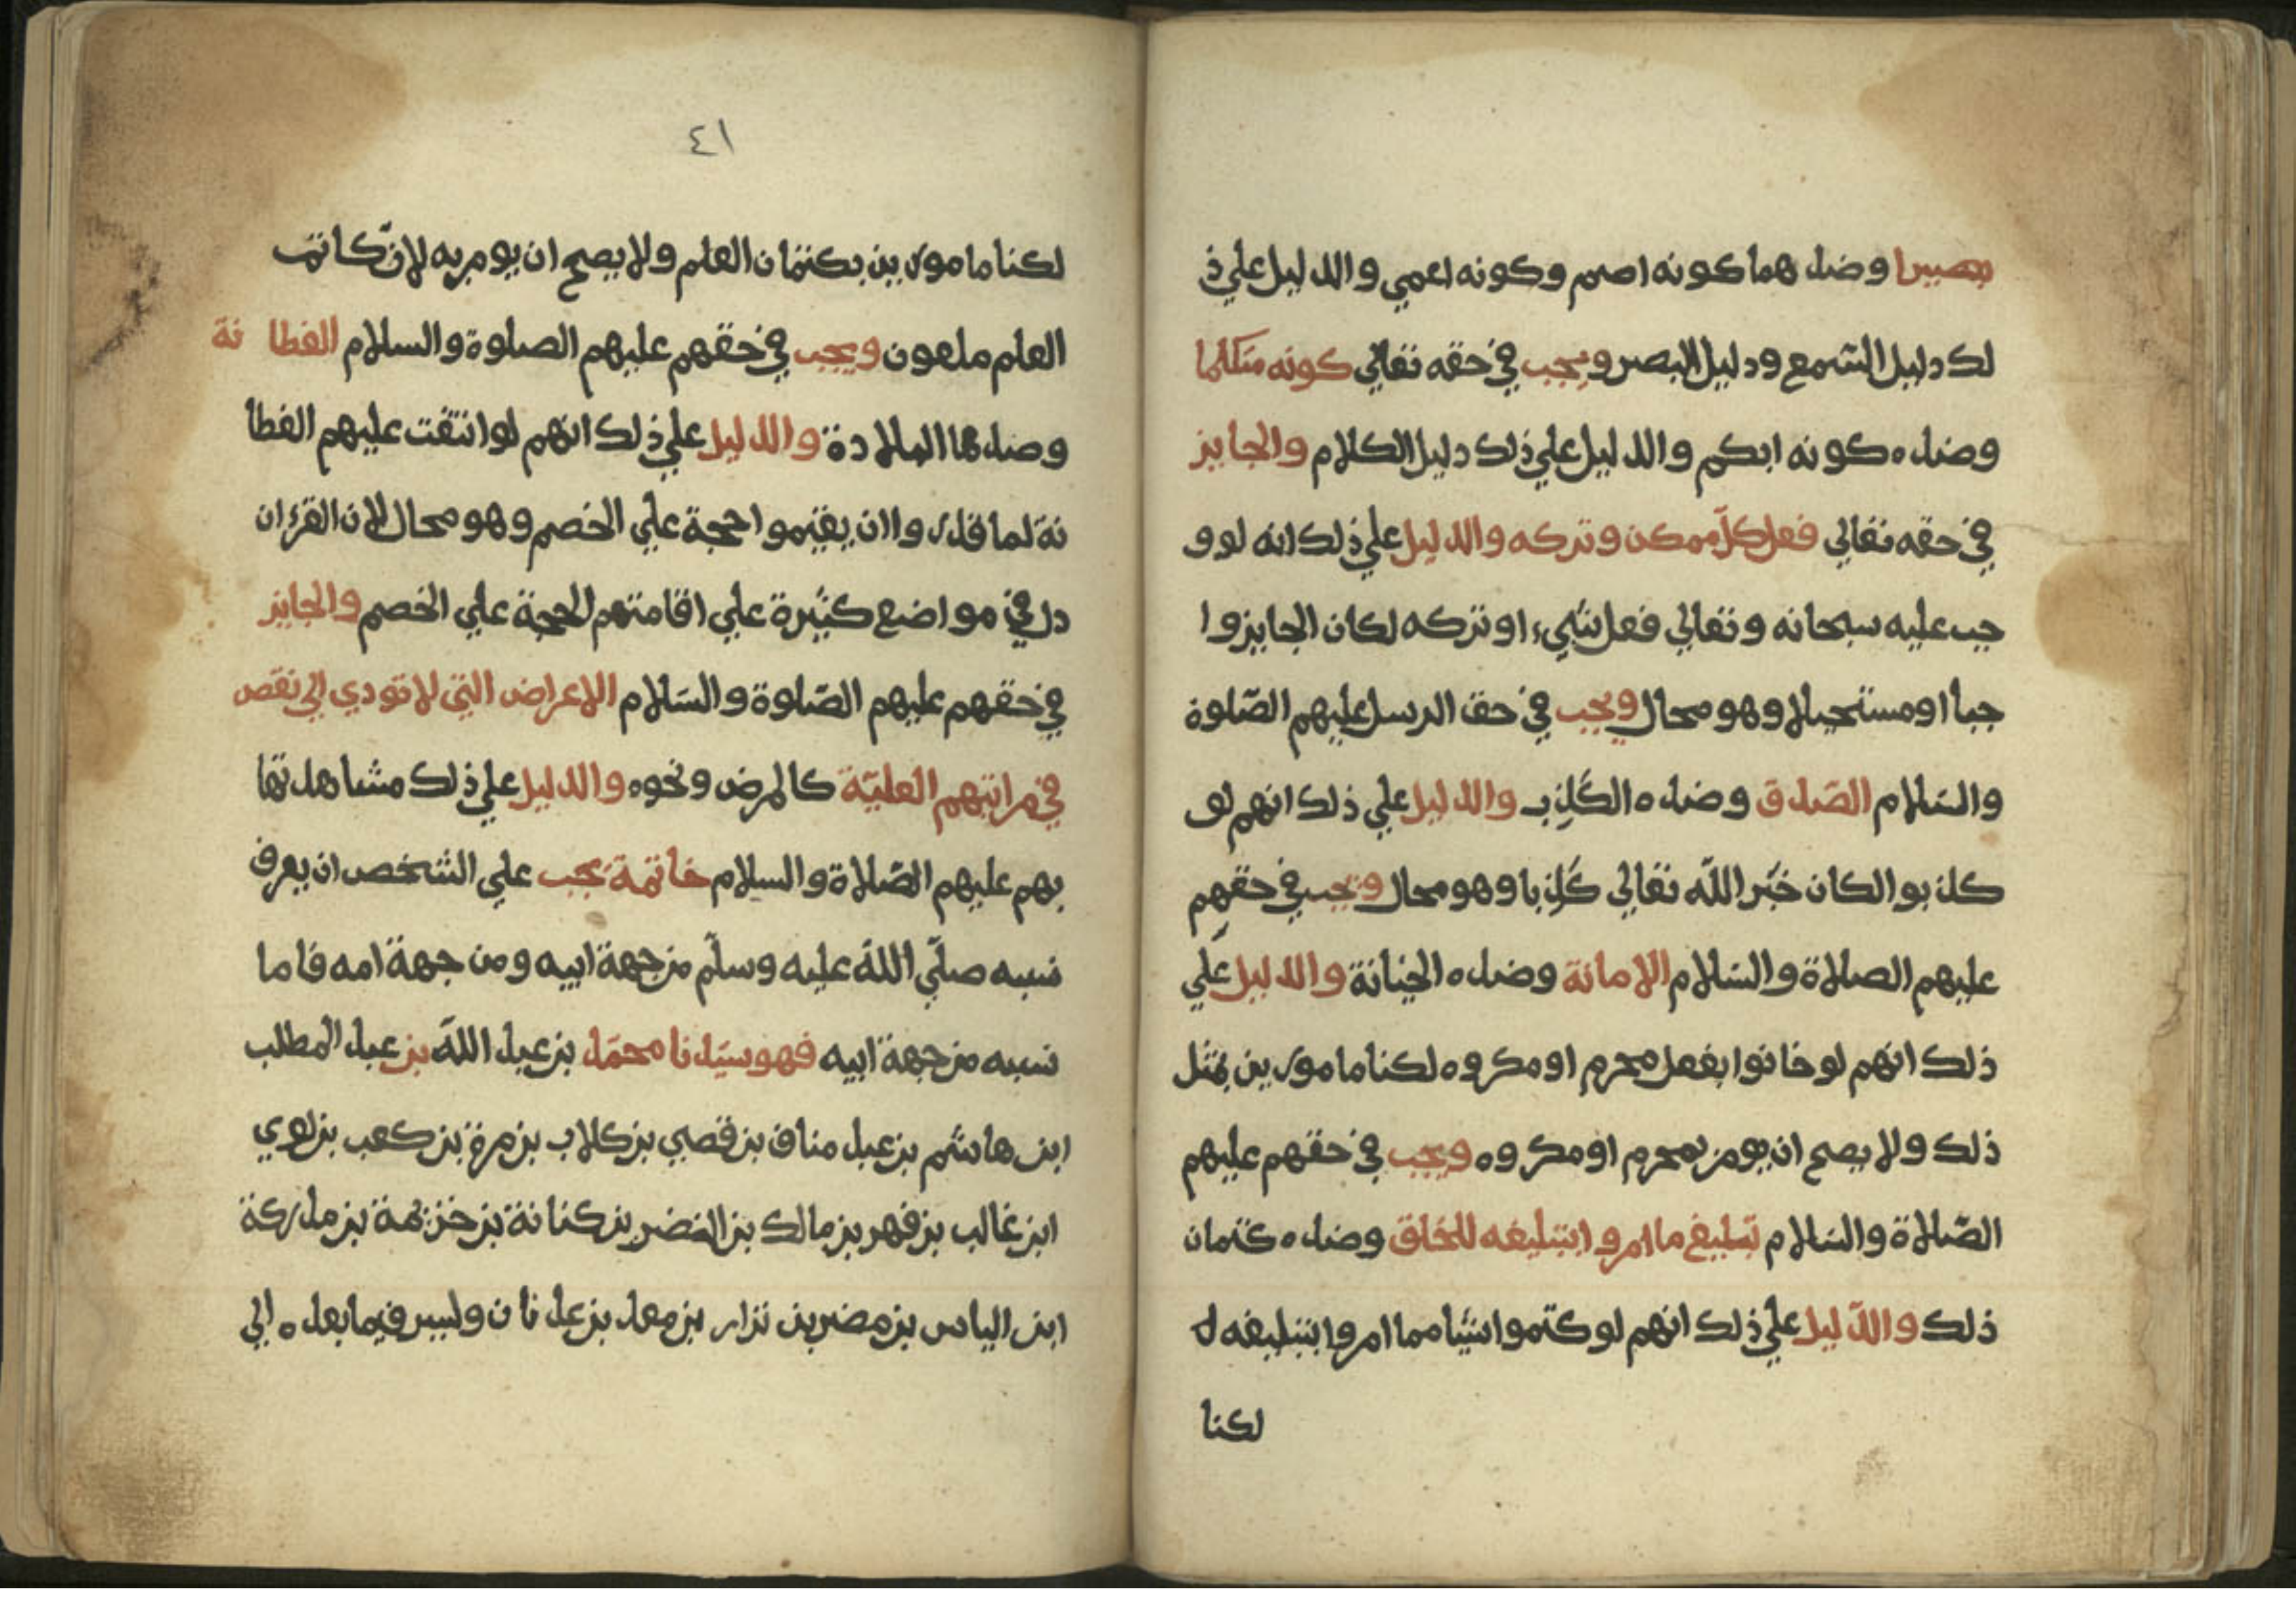 بصيرا وضدهما كونه اصم وكونه اعمي والدليل علي ذ
لك دليل السّمع ودليل البصر ويجب في حقه تعالي كونه متكلما
وضده كونه ابكم والدليل علي ذلك دليل الكلام والجايز
في حقه تعالي فعل كلّ ممكن وتركه والدليل علي ذلك انه لو و
جب عليه سبحانه وتعالي فعل شيء او تركه لكان الجايز وا
جبا او مستحيلا وهو محال ويجب في حق الرسل عليهم الصّلوة
والسّلام الصّدق وضده الكَذِب والدليل علي ذلك انهم لو
كذبوا لكان خبَر اللّه تعالي كَذِبا وهو محال ويجب في حقهم
عليهم الصلاة والسّلام الامانة وضده الخيانة والدليل علَي
ذلك انهم لو خانوا بفعل محرم او مكروه لكنا مامورين بمثل
ذلك ولا يصح ان يومر بمحرم او مكروه ويجب في حقهم عليهم
الصّلاة والسّلام تبليغ ما امروا بتبليغه للخلق وضده كتمان
ذلك والدّليل علي ذلك انهم لو كتموا شيا مما امروا بتبليغه ل
لكنا
٤١
لكنا مامورين بكتمان العلم ولا يصح ان يومر به لانّ كاتم
العلم ملعون ويجب في حقهم عليهم الصلوة والسلام الفطا نة
وضدها البلادة والدليل علي ذلك انهم لو انتفت عليهم الفطا
نة لما قدروا ان يقيموا حجة علي الخصم وهو محال لان القرءان
دل في مواضع كثيرة علي اقامتهم الحجة علي الخصم والجايز
في حقهم عليهم الصّلوة والسّلام الاعراض التي لا تودي الي نقص
في مراتبهم العليّة كالمرض ونحوه والدليل علي ذلك مشاهدتها
بهم عليهم الصّلاة والسلام خاتمة يجب علي الشخص ان يعرف
نسبه صلّي اللّه عليه وسلّم من جهة ابيه ومن جهة امه فاما
نسبه من جهة ابيه فهو سيّدنا محمّد بن عبد اللّه بن عبد المطلب
ابن هاشم بن عبد مناف بن قصي بن كلاب بن مرة بن كعب بن لوي
ابن غالب بن فهر بن مالك بن النضر بن كنانة بن خزيمة بن مدركة
ابن الياس بن مضر بن نزار بن معد بن عدنان وليس فيما بعده الي